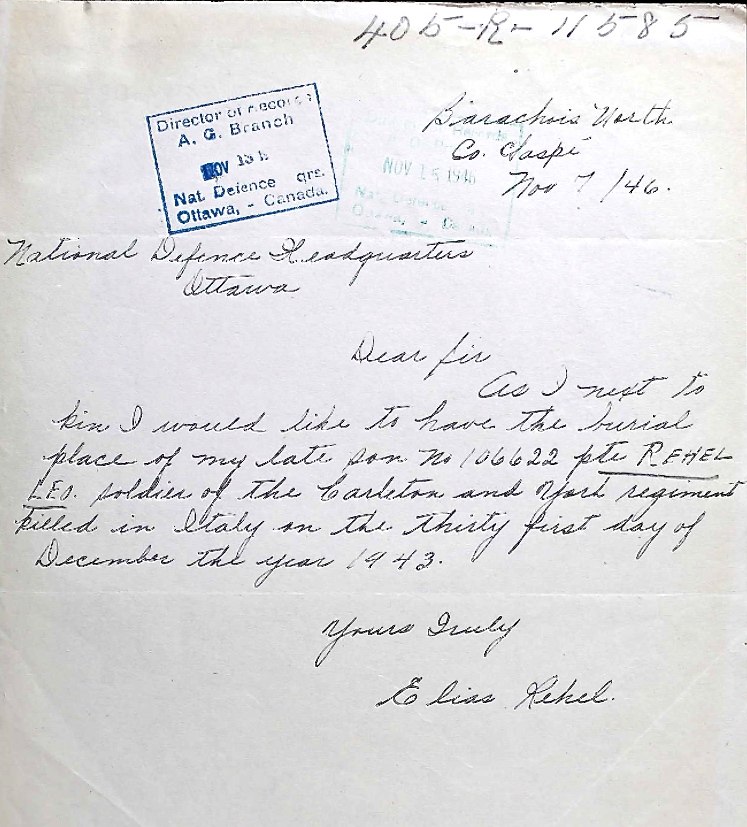 405-R-11585
Director of Records
A. G. Branch
NOV 13
Nat. Defence qrs.
Ottawa, - Canada.
Records
NOV 15 1946
Nat. Defence
Ottawa, - Canada
Barachois North
Co. Gaspé
Nov 7/46.
National Defence Headquarters
Ottawa
Dear Sir
As I next to
kin I would like to have the burial
place of my late son No 106622 pte REHEL
LEO. soldier of the Carleton and York regiment
killed in Italy on the thirty first day of
December the year 1943.
Yours Truly
Elias Rehel.